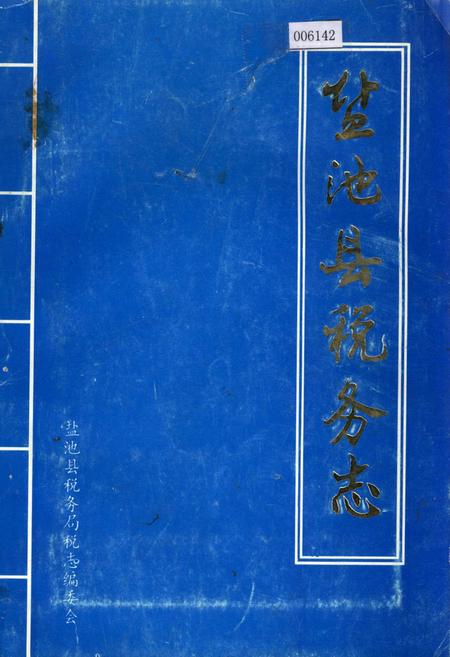 006142
盐池县税务志
盐池县税务局税志编委会